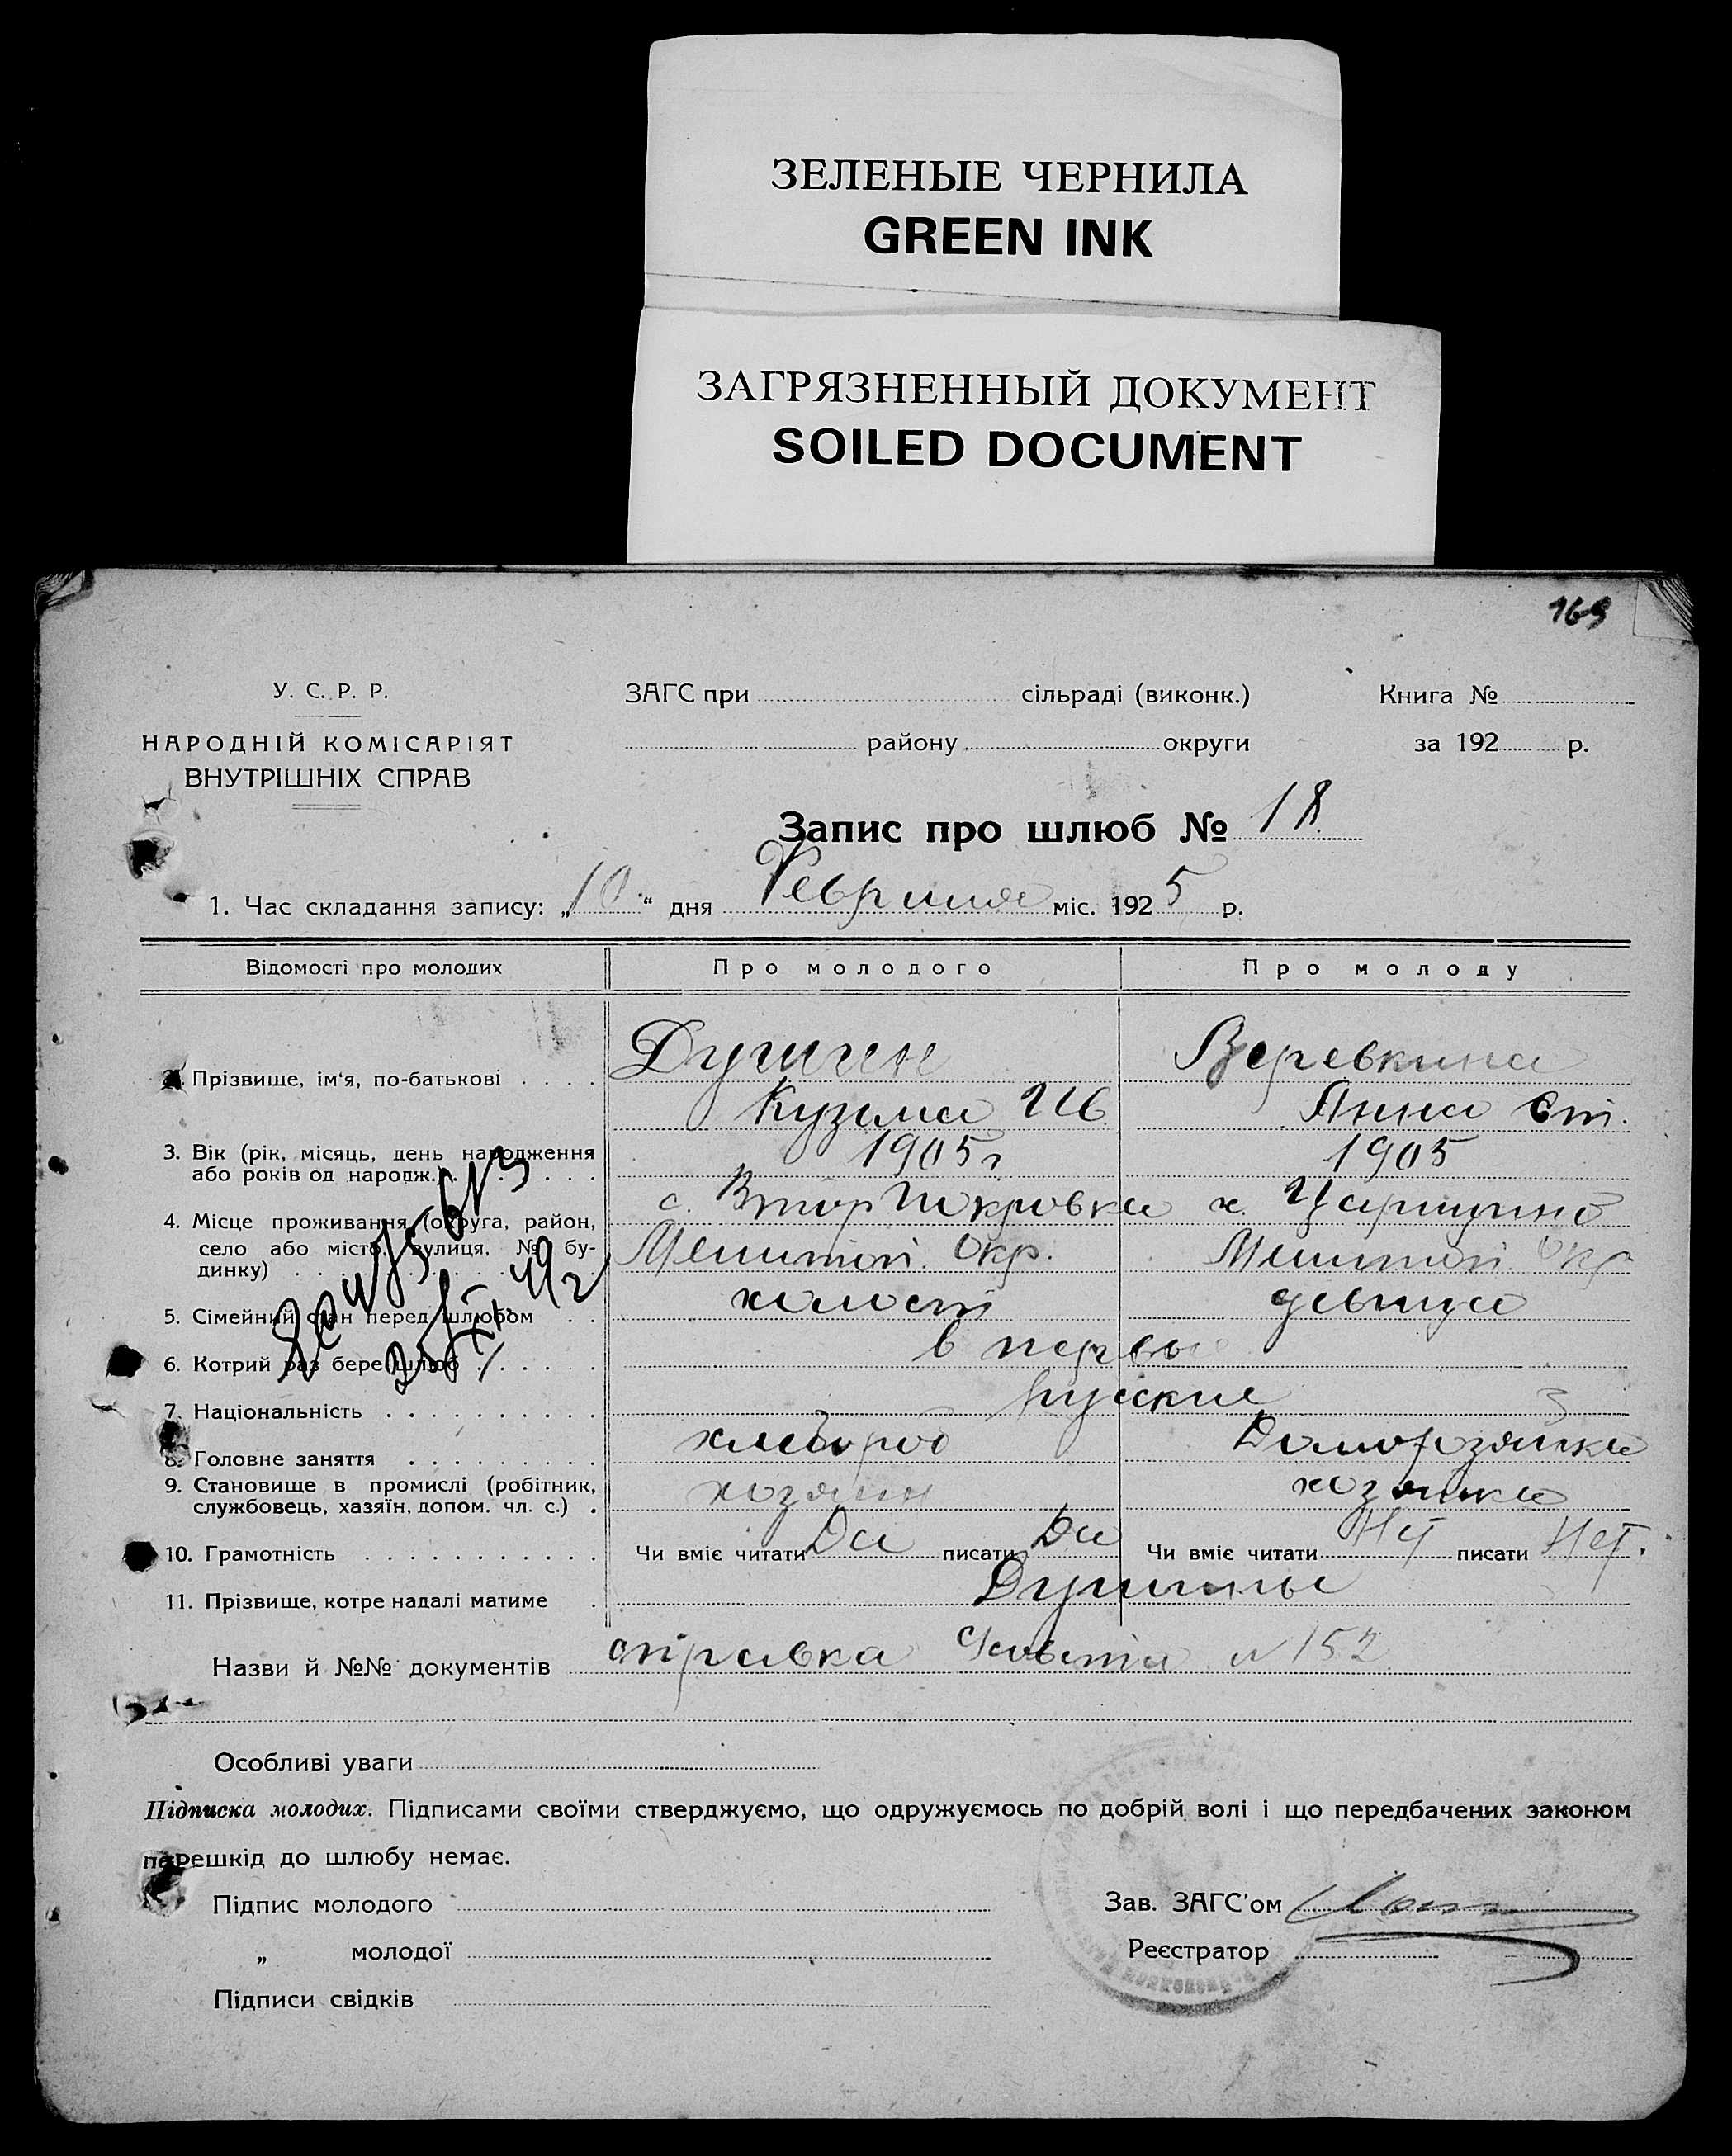 ЗЕЛЕНЫЕ ЧЕРНИЛА
GREEN INK
ЗАГРЯЗНЕННЫЙ ДОКУМЕНТ
SOILED DOCUMENT
169
У. С. Р. Р.
НАРОДНІЙ КОМІСАРІЯТ
ВНУТРІШНІХ СПРАВ
ЗАГС при сільраді (виконк.)
району округи
Книга №
за 192 р.
Запис про шлюб № 18
1. Час складання запису: „10“ дня Февраля міс. 1925 р.
Відомості про молодих Про молодого Про молоду
2. Прізвище, ім'я, по-батькові Душин Веревкина
Кузьма Ив Анна Ст.
3. Вік (рік, місяць, день народження або років од народж.) 1905г 1905
4. Місце проживання (округа, район, село або місто, вулиця, № будинку) с. Втор Покровка х. Царицыно
Мелитоп. Окр. Мелитоп. Окр
5. Сімейний стан перед шлюбом холост девица
6. Котрий раз бере шлюб в первы
7. Національність русские
8. Головне заняття хлебороб Домохозяйка
9. Становище в промислі (робітник, службовець, хазяїн, допом. чл. с.) хозяин хозяйка
10. Грамотність Чи вміє читати Да писати Да Чи вміє читати Нет писати Нет.
11. Прізвище, котре надалі матиме Душины
Назви й №№ документів справка № 152
Особливі уваги
Підписка молодих. Підписами своїми стверджуємо, що одружуємось по добрій волі і що передбачених законом
перешкід до шлюбу немає.
Підпис молодого
„ молодої
Підписи свідків
Зав. ЗАГС'ом
Реєстратор